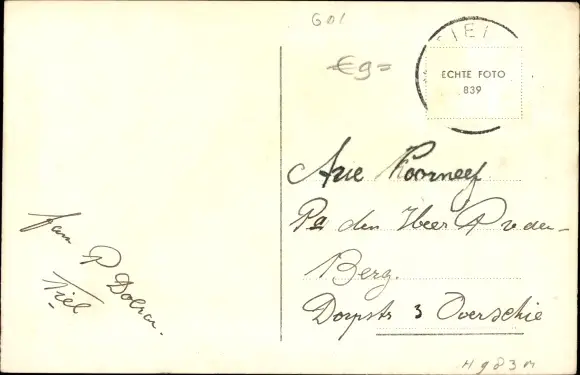 GD1
€9=
TIEL
ECHTE FOTO
839
Arie Koorneef
Pa den Heer P v den-
Berg.
Dorpstr 3 Overschie
fam P
Tiel
H983M